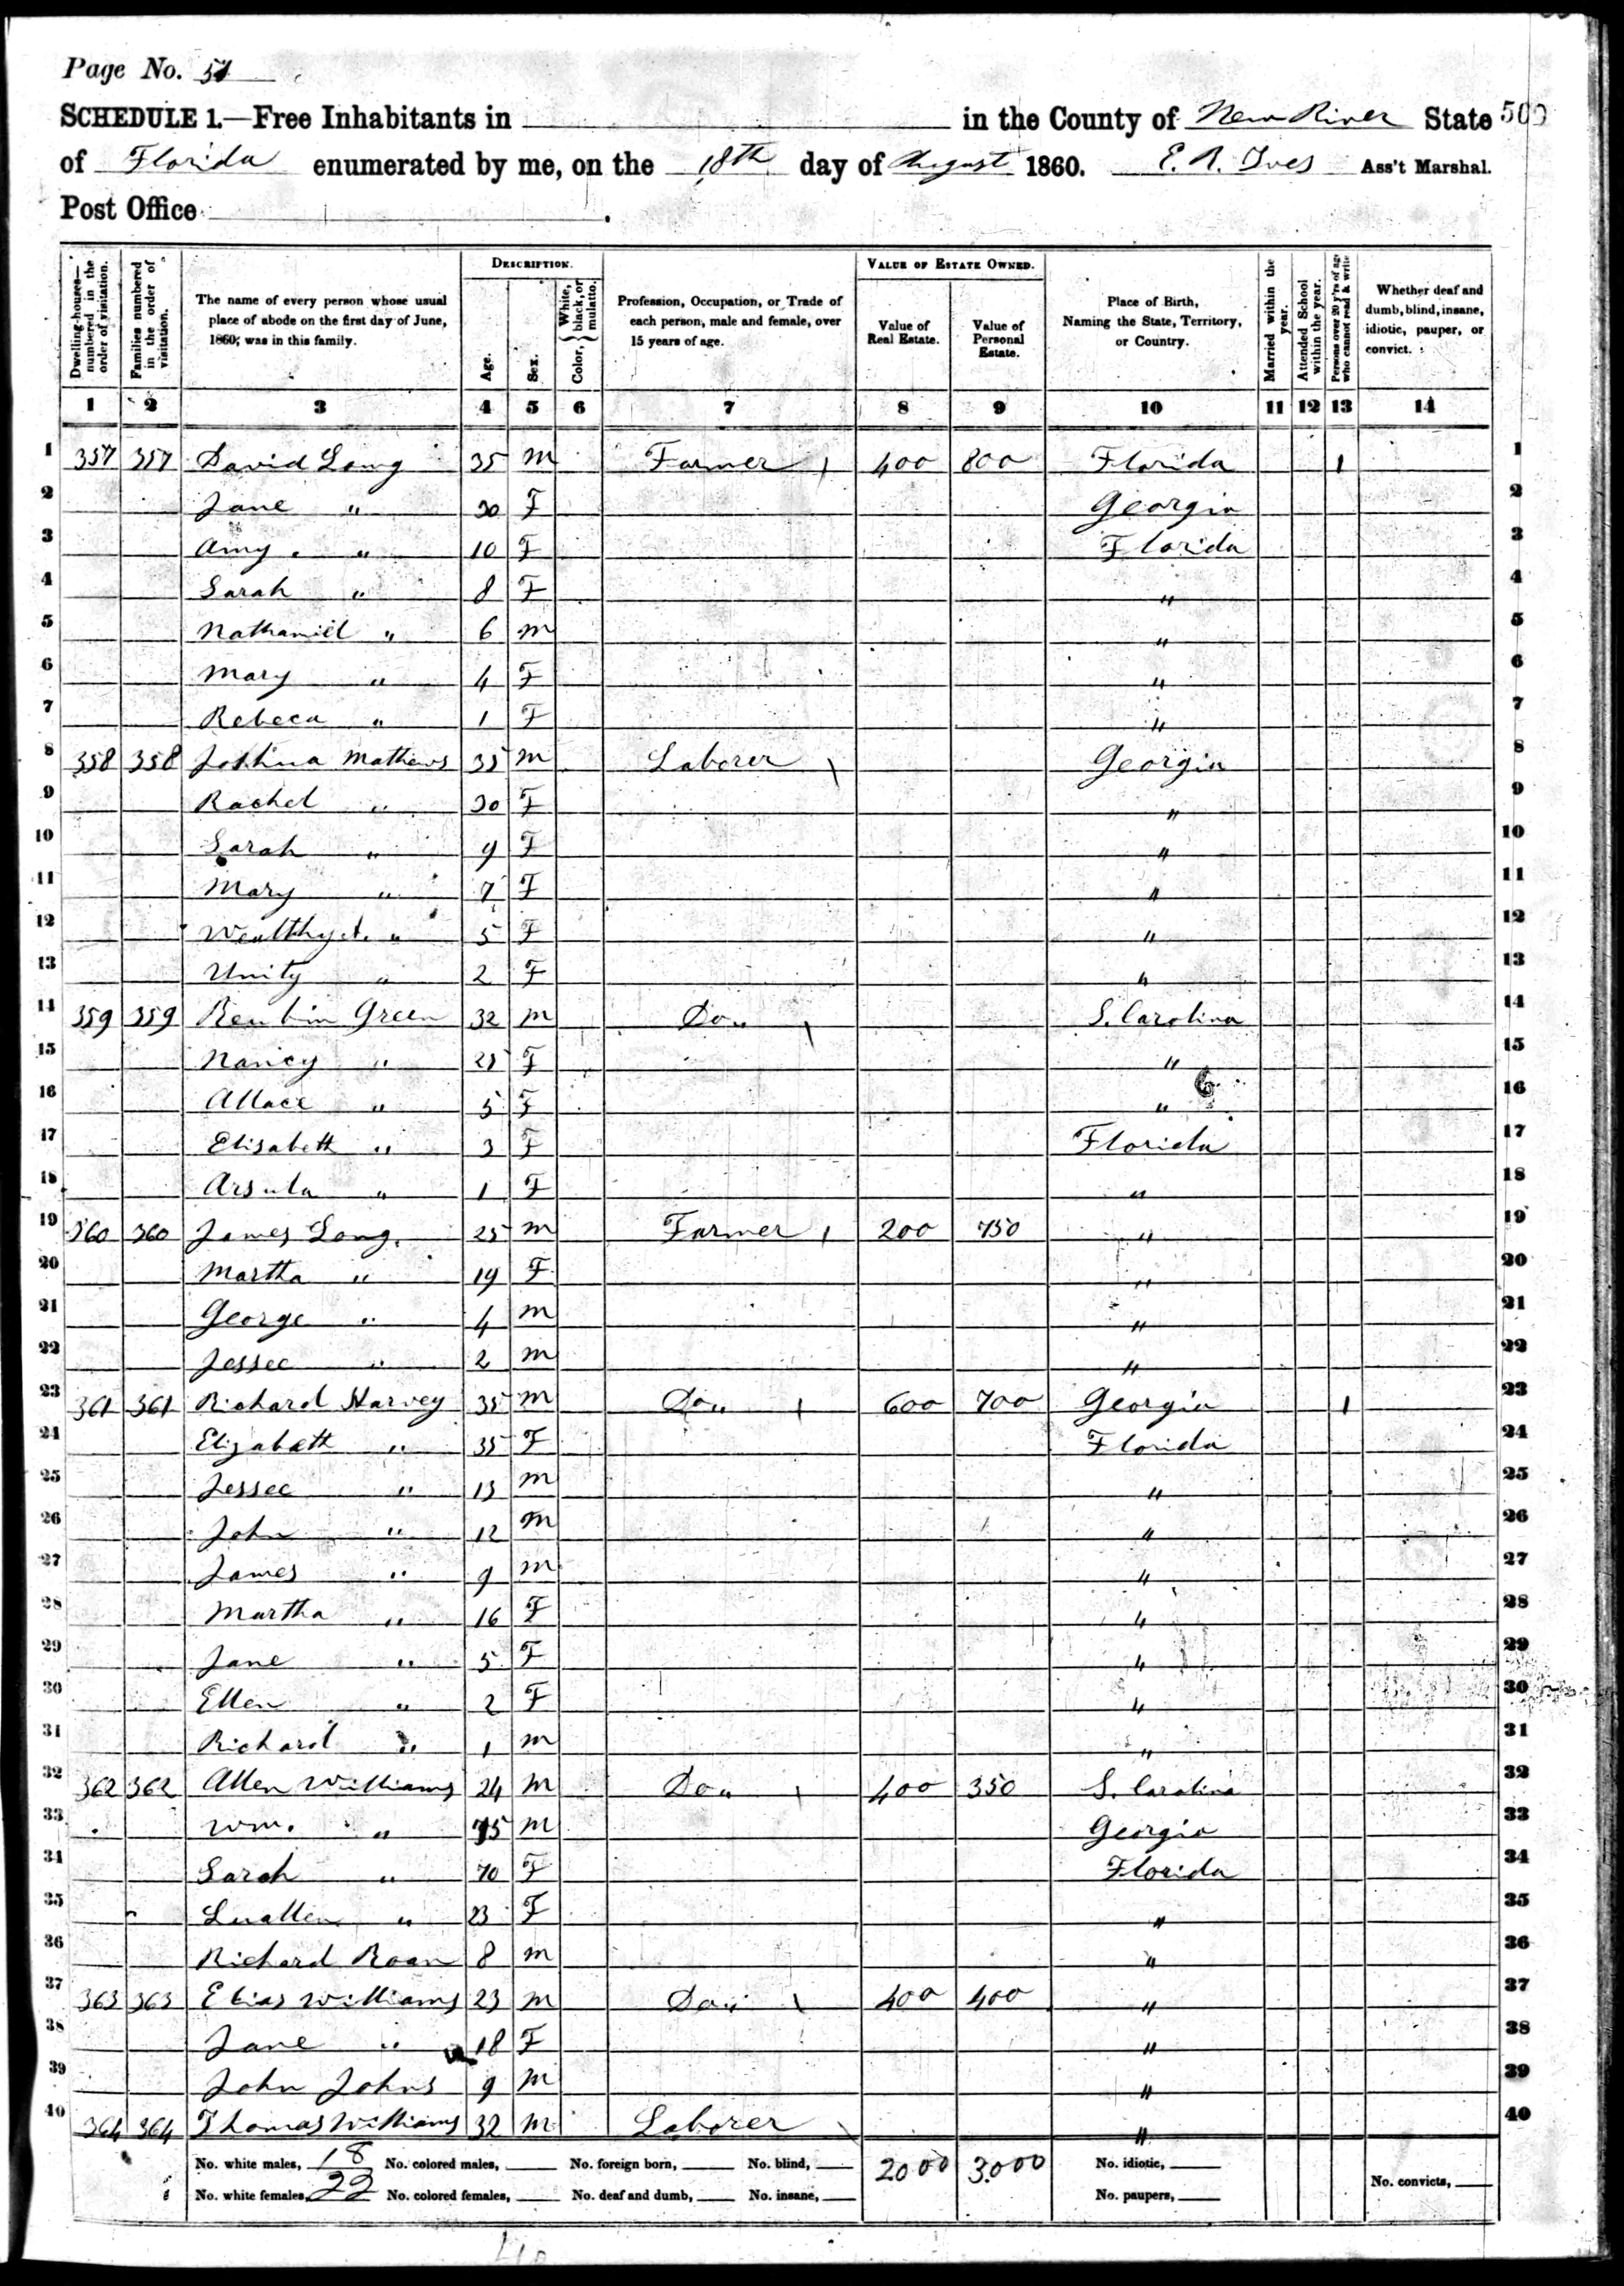 Page No. 51
SCHEDULE 1.—Free Inhabitants in in the County of New River State 500
of Florida enumerated by me, on the 18th day of August 1860. E. R. Ives Ass't Marshal.
Post Office
Dwelling-houses—numbered in the order of visitation. Families numbered in the order of visitation. The name of every person whose usual place of abode on the first day of June, 1860, was in this family. DESCRIPTION. Age. Sex. Color, White, black, or mulatto. Profession, Occupation, or Trade of each person, male and female, over 15 years of age. VALUE OF ESTATE OWNED. Value of Real Estate. Value of Personal Estate. Place of Birth, Naming the State, Territory, or Country. Married within the year. Attended School within the year. Persons over 20 y'rs of age who cannot read & write Whether deaf and dumb, blind, insane, idiotic, pauper, or convict.
1 2 3 4 5 6 7 8 9 10 11 12 13 14
1 357 357 David Long 35 m Farmer 400 800 Florida 1 1
2 Jane " 30 F Georgia 2
3 Amy " 10 F Florida 3
4 Sarah " 8 F " 4
5 Nathaniel " 6 m " 5
6 Mary " 4 F " 6
7 Rebeca " 1 F " 7
8 358 358 Joshua Mathews 35 m Laborer Georgia 8
9 Rachel " 30 F " 9
10 Sarah " 9 F " 10
11 Mary " 7 F " 11
12 Wealthy A. " 5 F " 12
13 Unity " 2 F " 13
14 359 359 Reubin Green 32 m Do " S. Carolina 14
15 Nancy " 25 F " 15
16 Allace " 5 F " 16
17 Elisabeth " 3 F Florida 17
18 Arsula " 1 F " 18
19 360 360 James Long. 25 m Farmer 200 750 " 19
20 Martha " 19 F " 20
21 George " 4 m " 21
22 Jessee " 2 m " 22
23 361 361 Richard Harvey 35 m Do " 600 700 Georgia 1 23
24 Elizabeth " 35 F Florida 24
25 Jessee " 13 m " 25
26 John " 12 m " 26
27 James " 9 m " 27
28 Martha " 16 F " 28
29 Jane " 5 F " 29
30 Ellen " 2 F " 30
31 Richard " 1 m " 31
32 362 362 Allen Williams 24 m Do " 400 350 S. Carolina 32
33 Wm. " 75 m Georgia 33
34 Sarah " 70 F Florida 34
35 Luallen " 23 F " 35
36 Richard Roan 8 m " 36
37 363 363 Elias Williams 23 m Do " 400 400 " 37
38 Jane " 18 F " 38
39 John Johns 9 m " 39
40 364 364 Thomas Williams 32 m Laborer " 40
No. white males, 18 No. colored males, No. foreign born, No. blind, 2000 3000 No. idiotic,
No. white females, 22 No. colored females, No. deaf and dumb, No. insane, No. paupers, No. convicts,